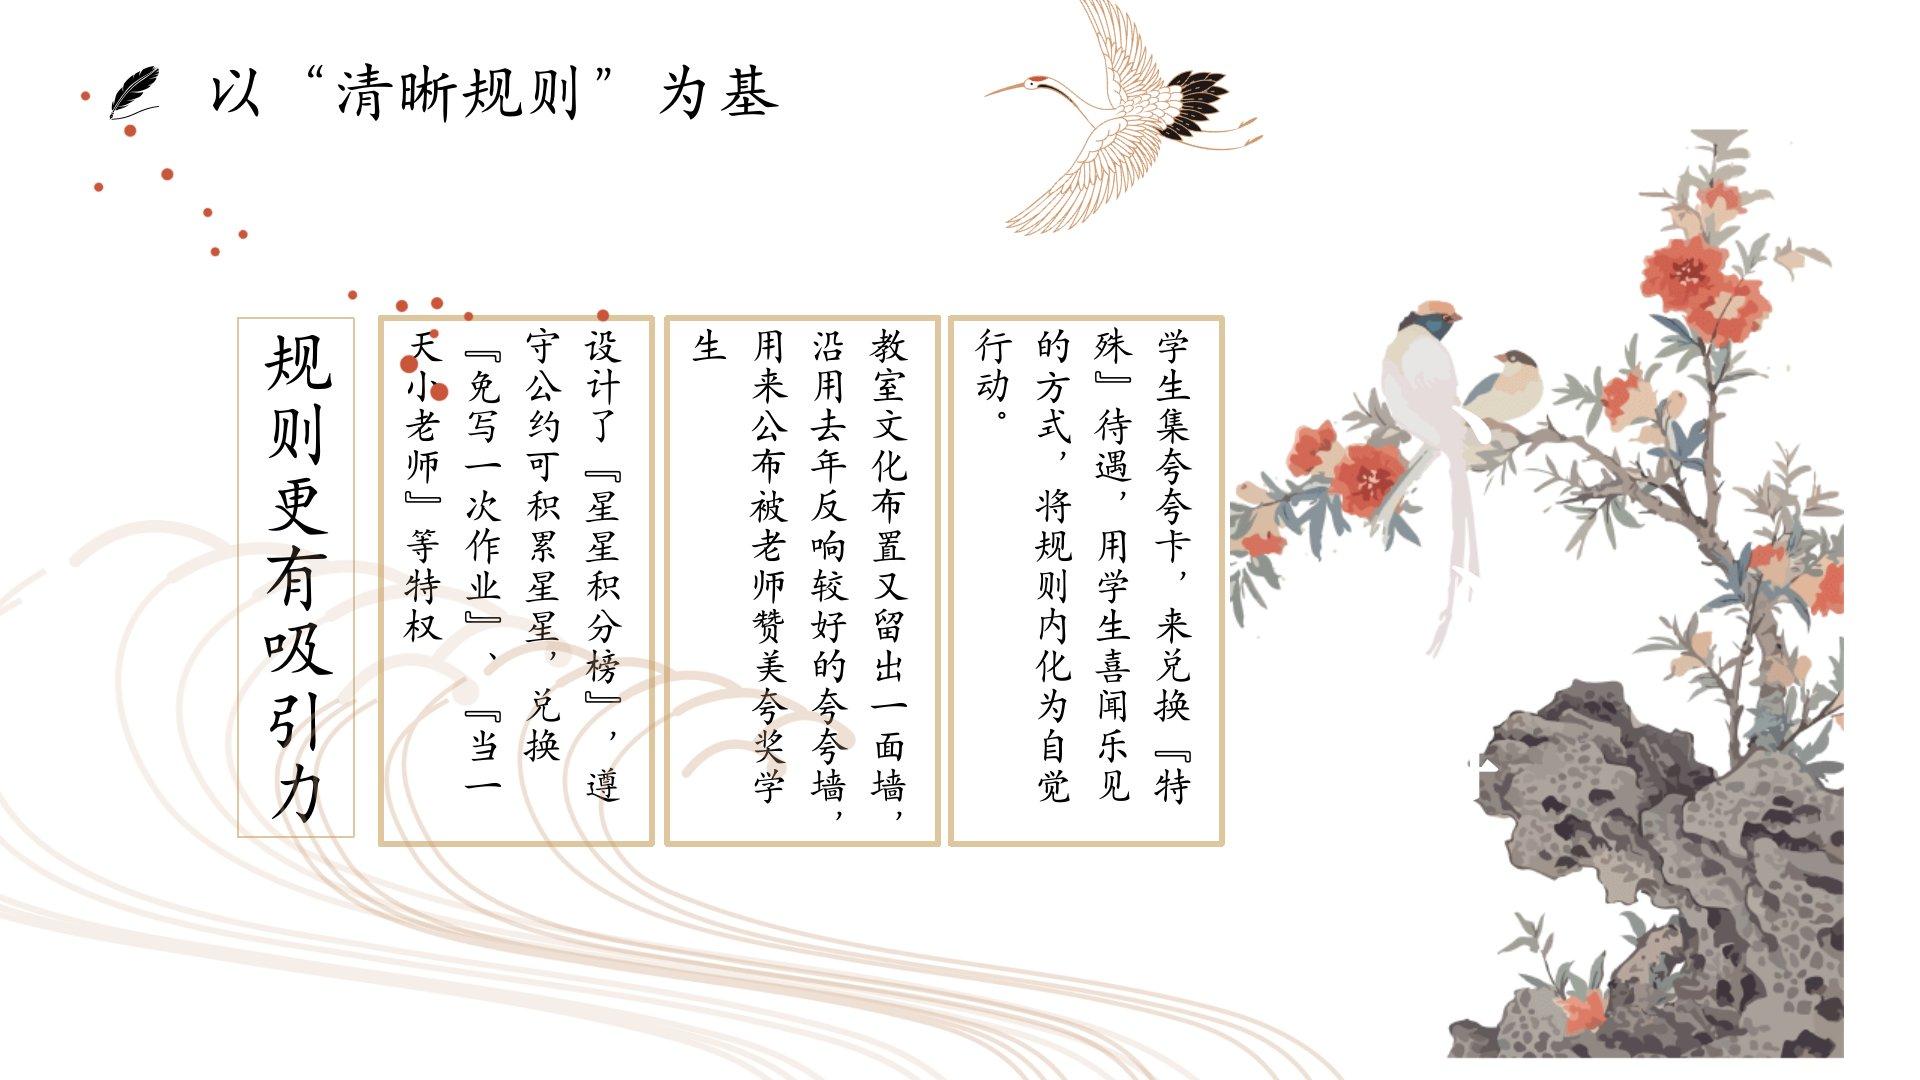 以“清晰规则”为基
规则更有吸引力
设计了『星星积分榜』，遵
守公约可积累星星，兑换
『免写一次作业』、『当一
天小老师』等特权
教室文化布置又留出一面墙，
沿用去年反响较好的夸夸墙，
用来公布被老师赞美夸奖学
生
学生集夸夸卡，来兑换『特
殊』待遇，用学生喜闻乐见
的方式，将规则内化为自觉
行动。